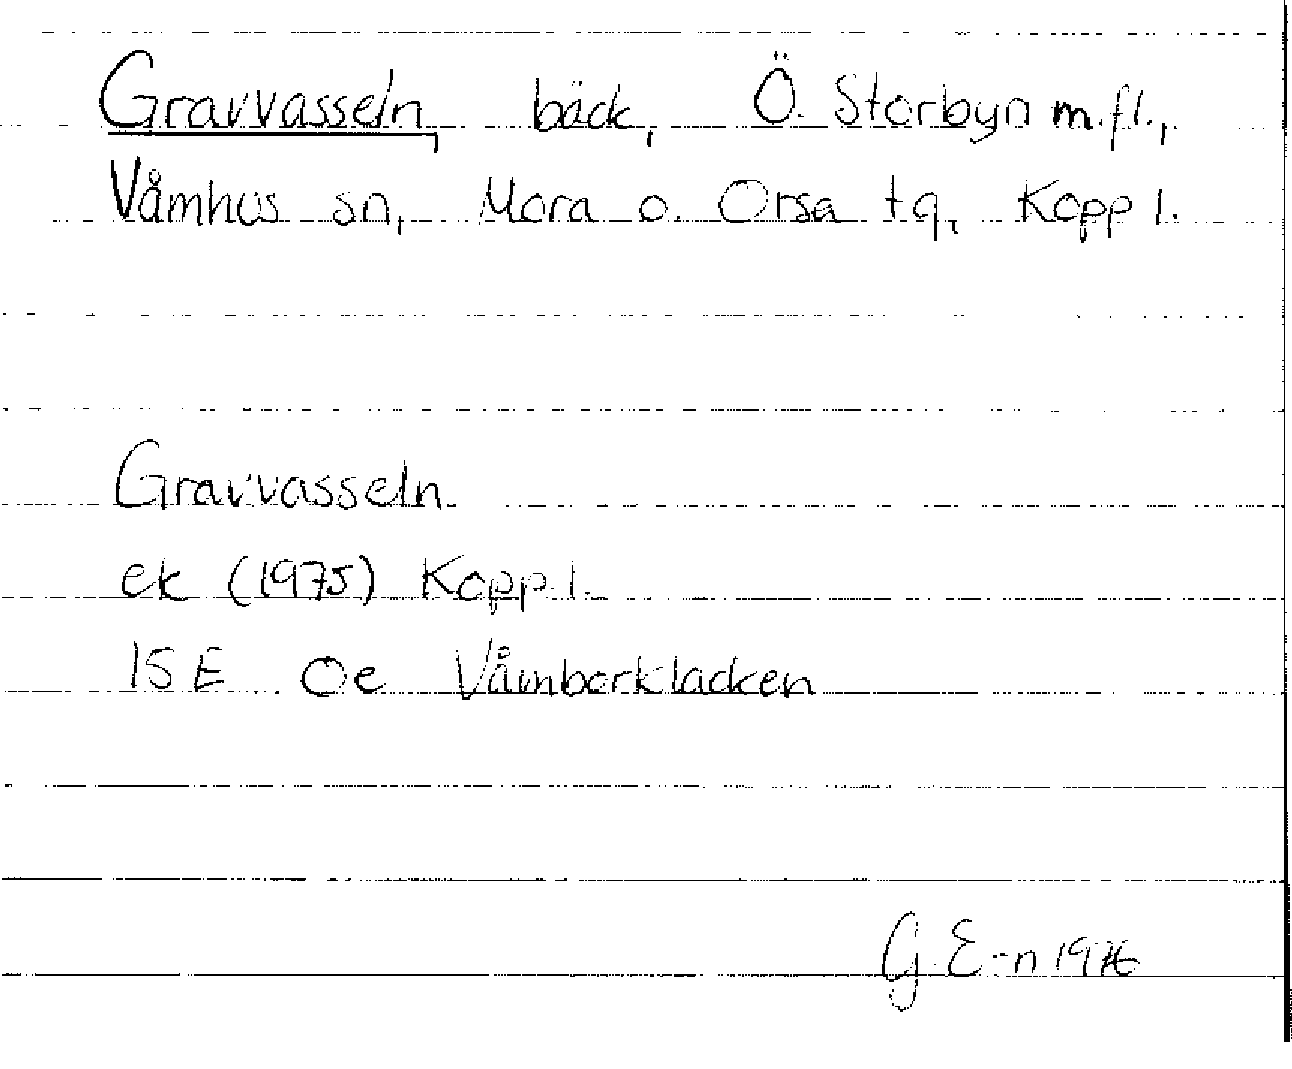 Gravvasseln, bäck, Ö. Storbyn m.fl.,
Våmhus sn, Mora o. Orsa tg, Kopp l.
Gravvasseln
ek (1975) Kopp.l.
15 E 0e Våmborklacken
G. E-n 1976